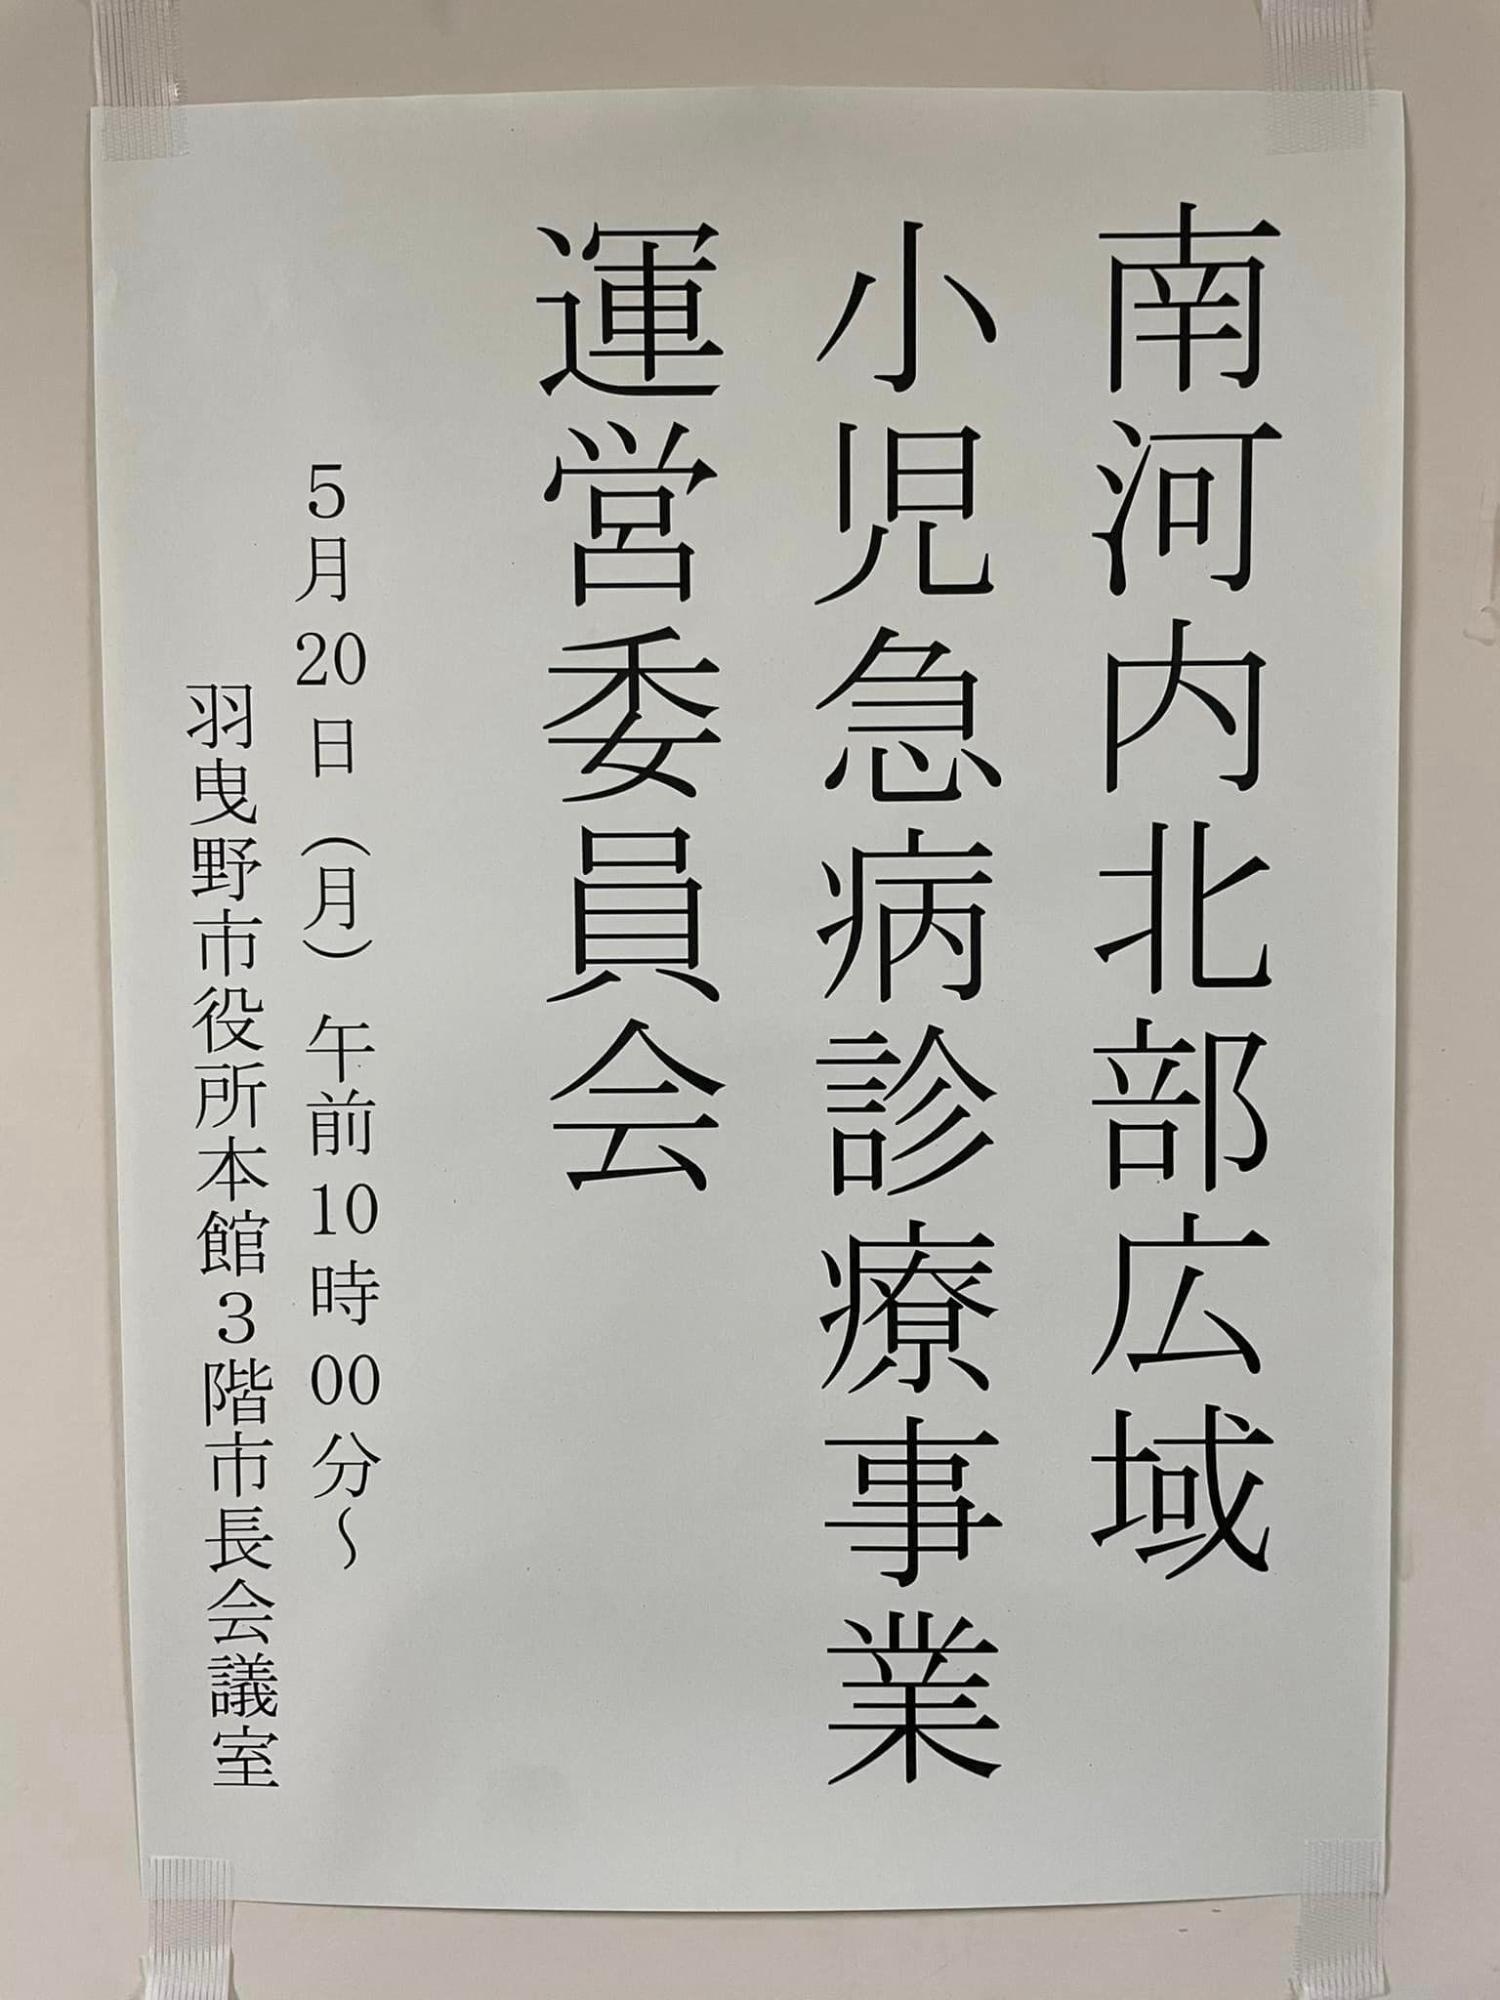 南河内北部広域
小児急病診療事業
運営委員会
5月20日（月）午前10時00分～
羽曳野市役所本館3階市長会議室